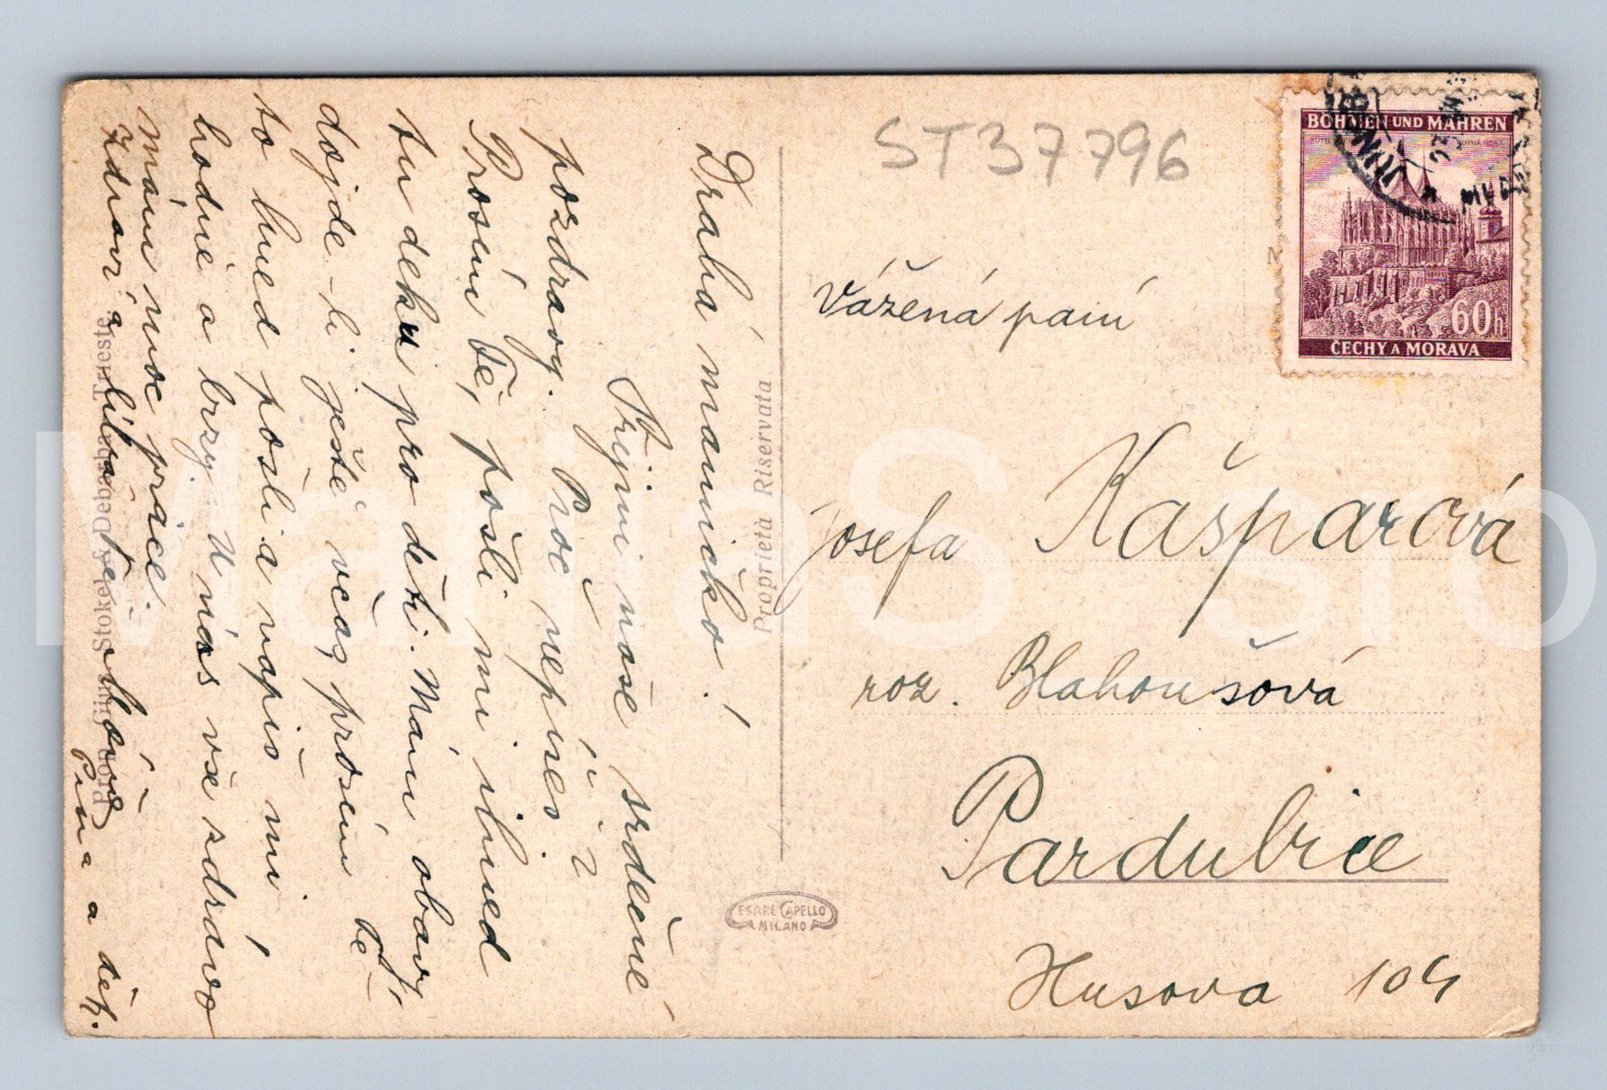 Drahá maminko!
Přijmi naše srdečné
pozdravy. Proč nepíšeš?
Prosím tě, pošli mi ihned
tu deku pro děti. Mám obavy,
dojde-li ještě včas, prosím tě
to hned pošli a napiš mi
hodně a brzy. U nás vše zdrávo
mám moc práce.
Zdraví a líbá tě
Pina a děti.
Proprietà Riservata
Stokel & Debarba Trieste
CESARE CAPELLO
MILANO
ST37796
BÖHMEN UND MÄHREN
60h
ČECHY A MORAVA
Vážená paní
Josefa Kašparová
roz. Blahoušová
Pardubice
Husova 104
MartaS sro